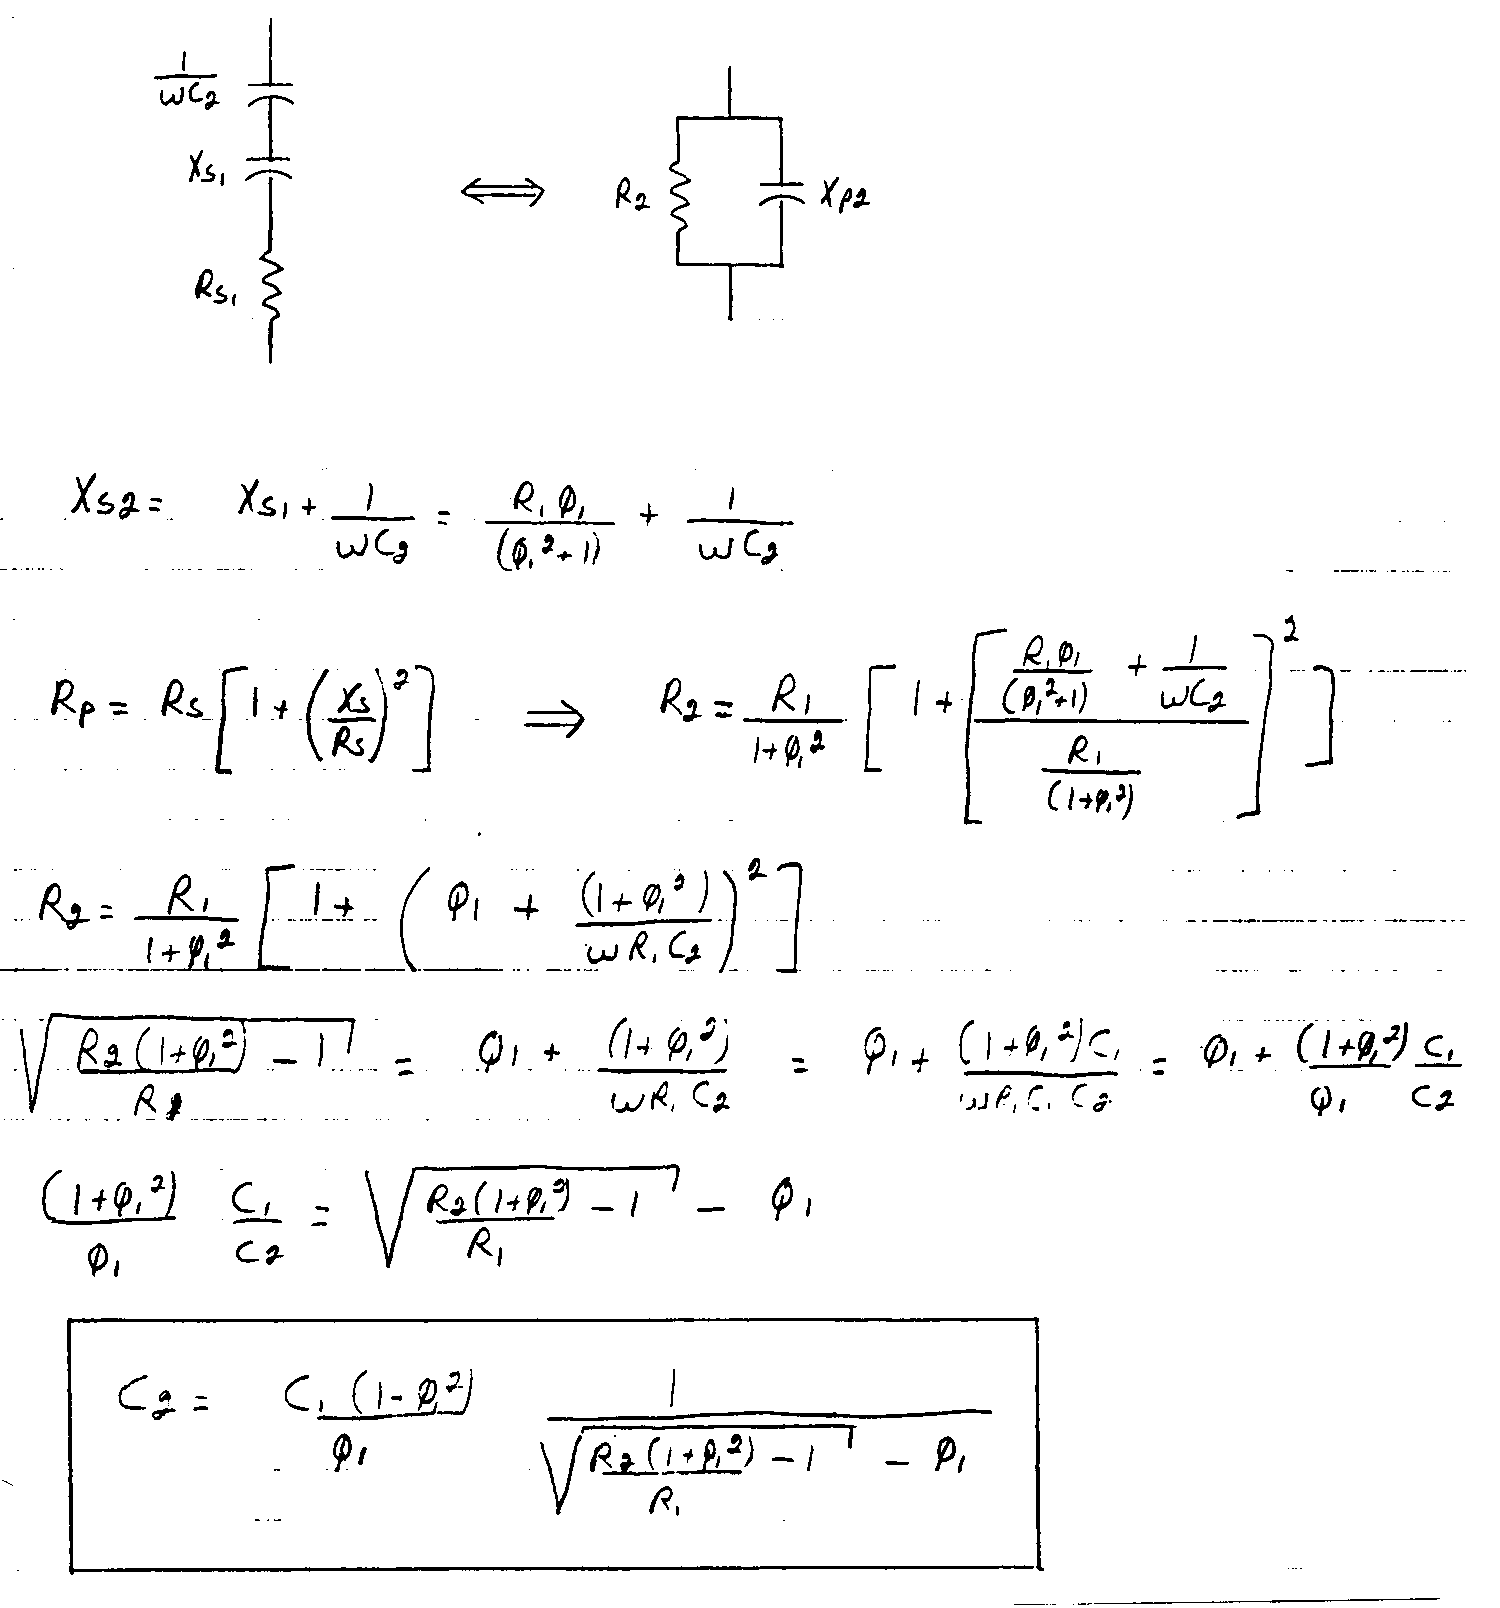 1/ωC₂
X_S₁
R_S₁
⟺
R₂
X_P₂
X_S₂ = X_S₁ + 1/ωC₂ = R₁Φ₁/(Φ₁²+1) + 1/ωC₂
R_P = R_S [1 + (X_S/R_S)²] ⟹ R₂ = R₁/(1+Φ₁²) [1 + [(R₁Φ₁/(Φ₁²+1) + 1/ωC₂)/(R₁/(1+Φ₁²))]²]
R₂ = R₁/(1+Φ₁²) [1 + (Φ₁ + (1+Φ₁²)/ωR₁C₂)²]
√(R₂(1+Φ₁²)/R₂ − 1) = Φ₁ + (1+Φ₁²)/ωR₁C₂ = Φ₁ + (1+Φ₁²)C₁/ωR₁C₁C₂ = Φ₁ + (1+Φ₁²)/Φ₁ C₁/C₂
(1+Φ₁²)/Φ₁ C₁/C₂ = √(R₂(1+Φ₁²)/R₁ − 1) − Φ₁
C₂ = C₁(1-Φ₁²)/Φ₁ 1/(√(R₂(1+Φ₁²)/R₁ − 1) − Φ₁)